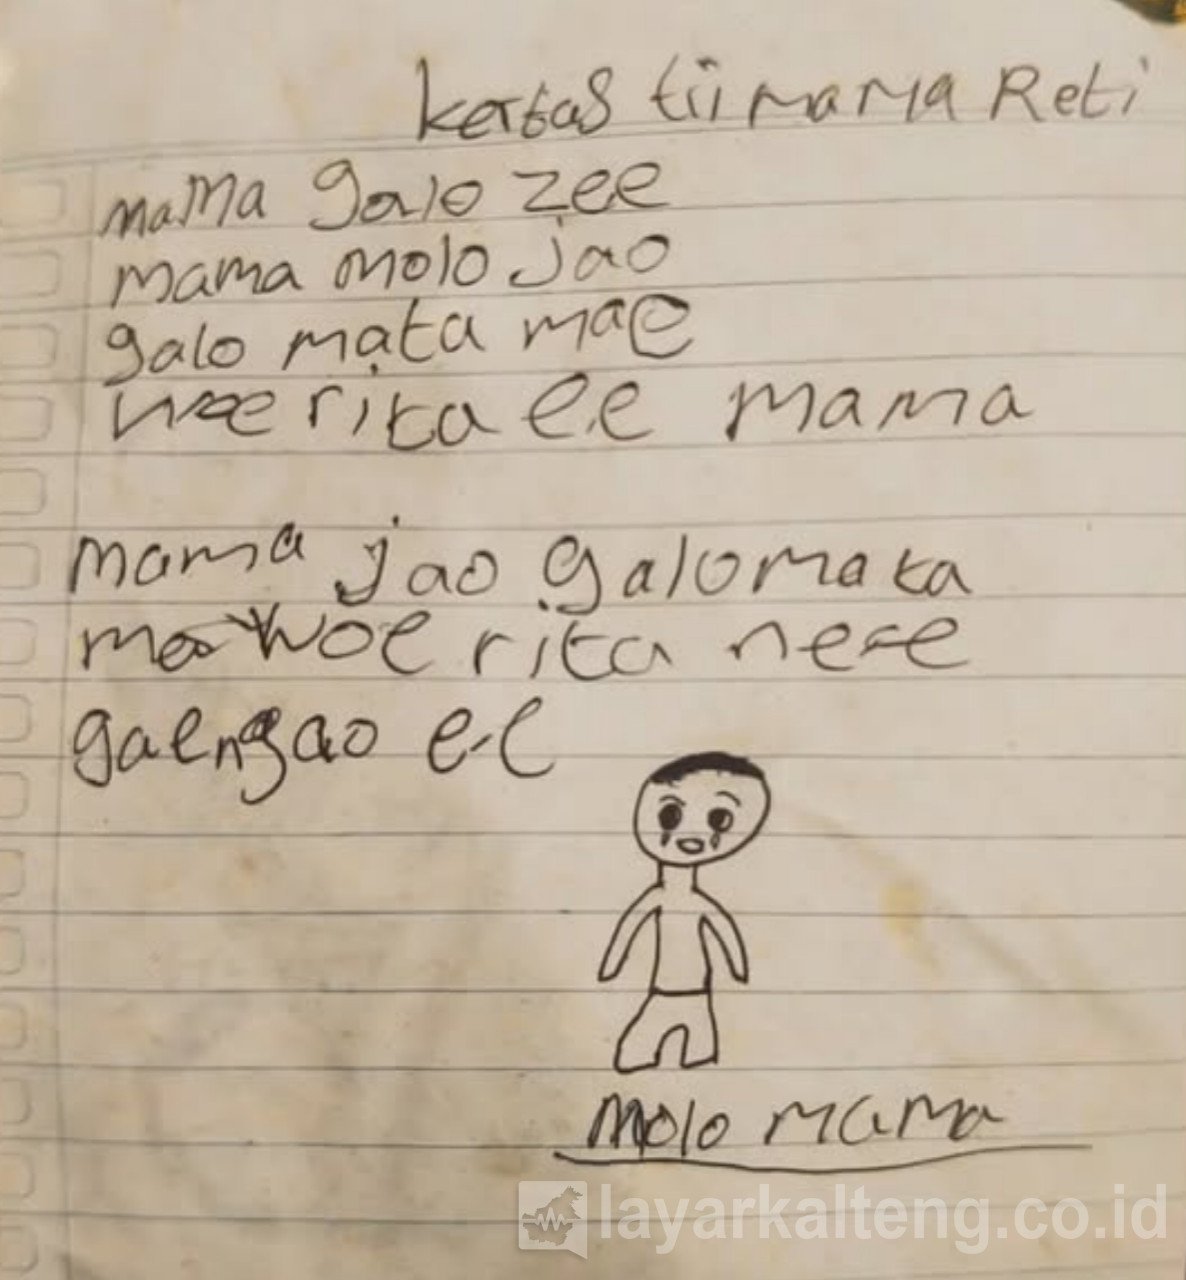 kertas tii mama Reti
mama galo zee
mama molo jao
galo mata mae
woe rita ee mama
mama jao galo mata
mae woe rita ne ee
gae ngao ee
molo mama
layarkalteng.co.id